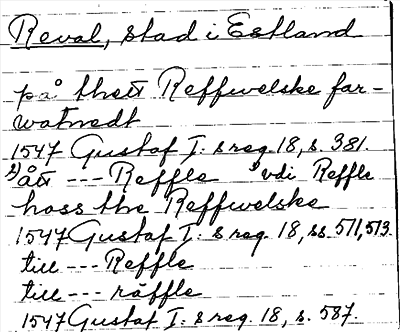 Reval, stad i Estland
på thett Reffwelske far-
watnedt
1547 Gustaf I:s reg. 18, s. 381.
ått --- Reffle vdi Reffle
hoss the Reffwelske
1547 Gustaf I:s reg. 18, ss. 511, 513.
till --- Reffle
till --- räffle
1547 Gustaf I:s reg. 18, s. 587.